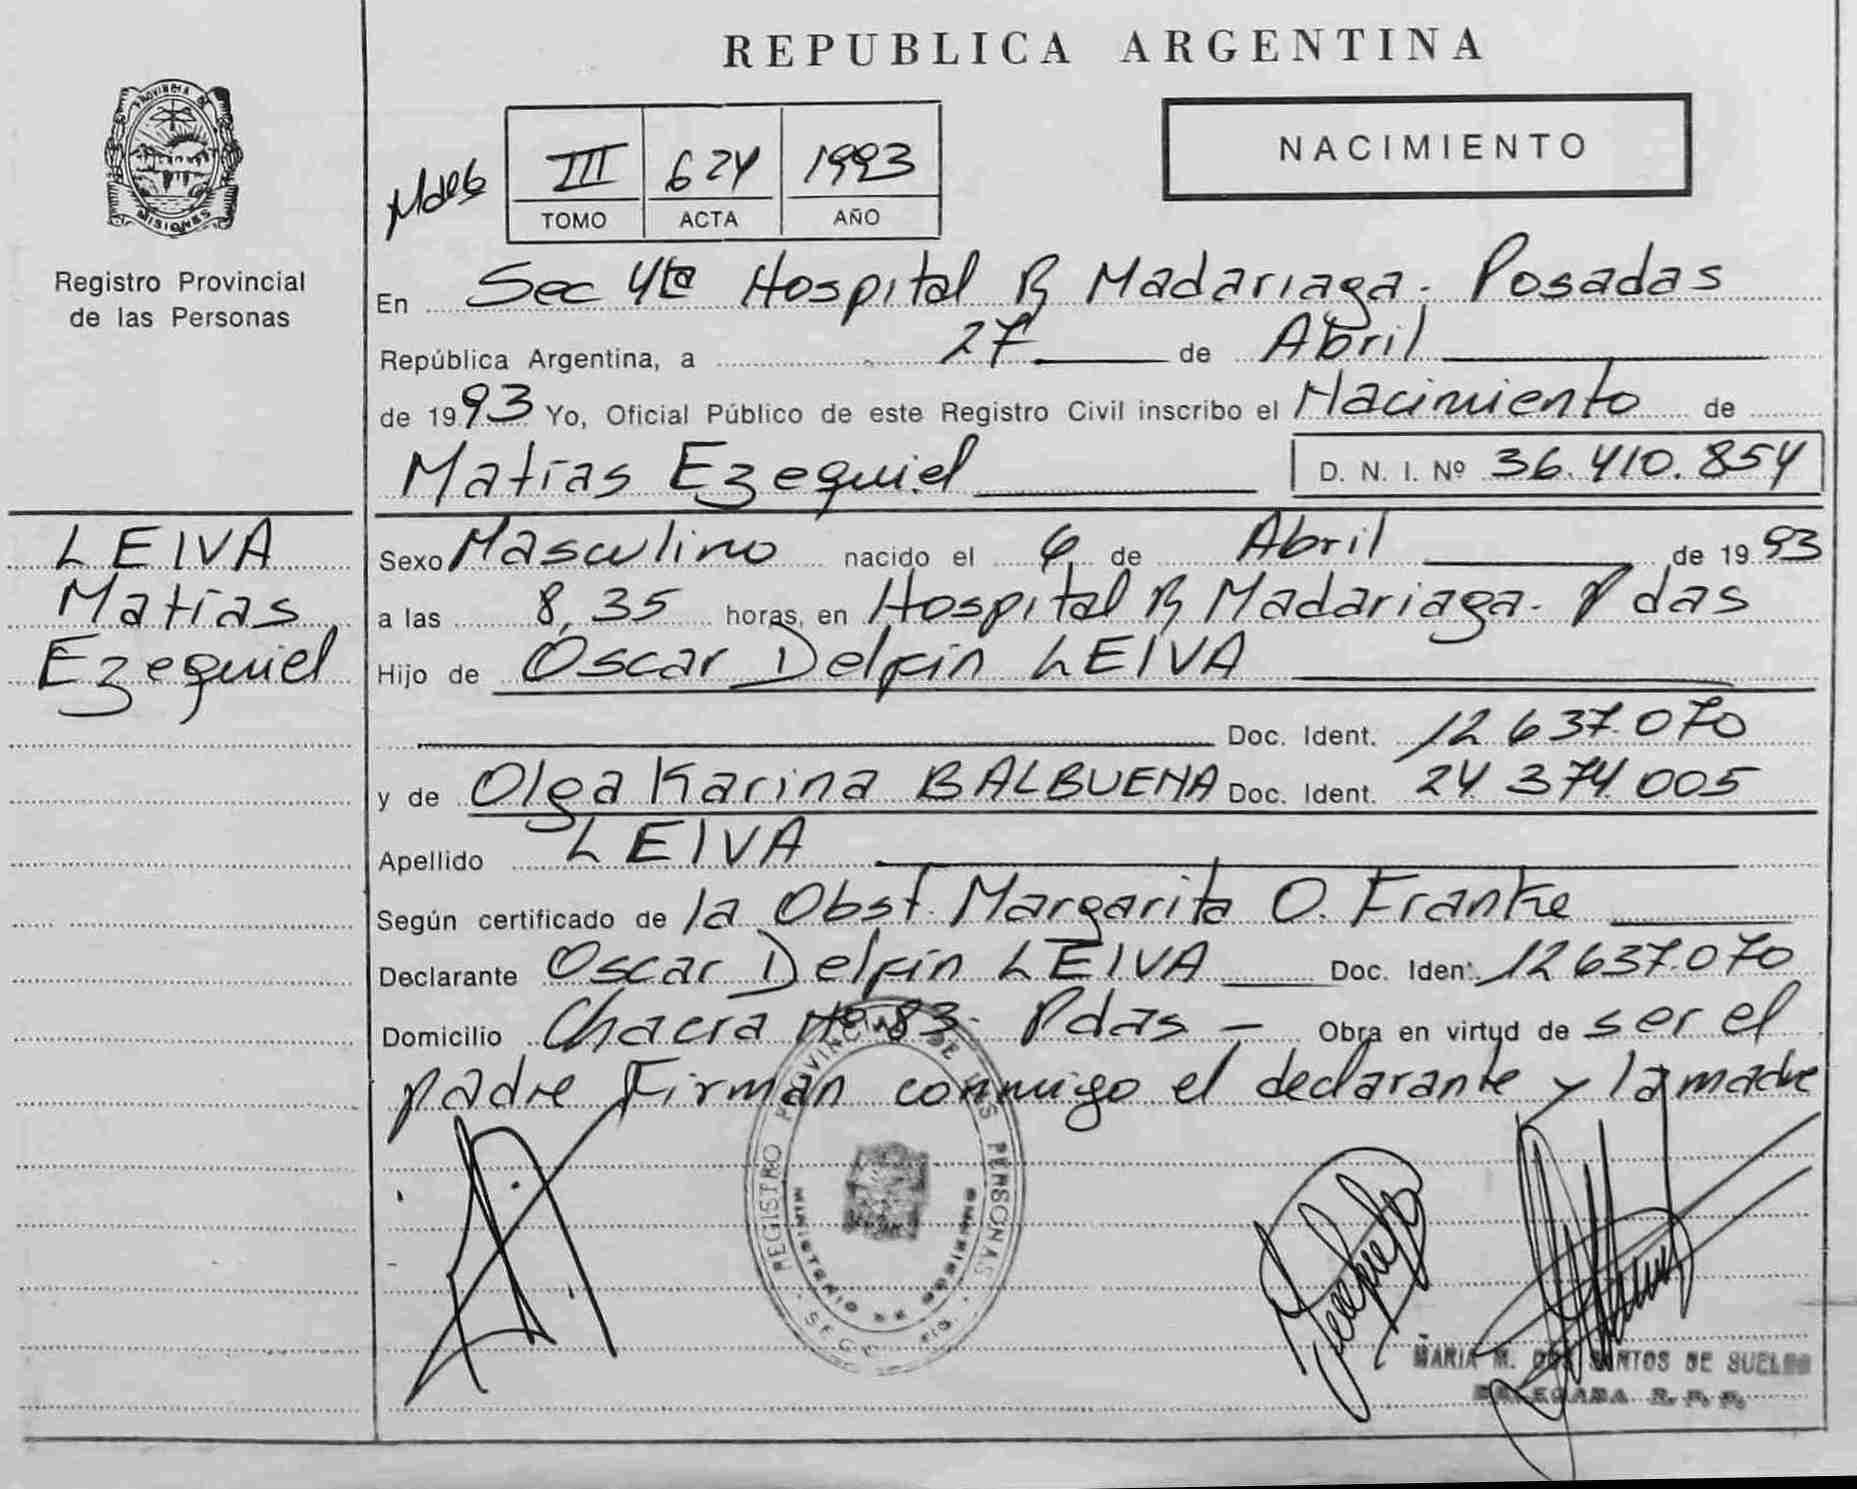 REPUBLICA ARGENTINA
PROVINCIA DE
MISIONES
Registro Provincial
de las Personas
III 624 1993
TOMO ACTA AÑO
NACIMIENTO
En Sec 4ta Hospital R Madariaga. Posadas
República Argentina, a 27 de Abril
de 1993 Yo, Oficial Público de este Registro Civil inscribo el Nacimiento de
Matías Ezequiel D. N. I. Nº 36.410.854
LEIVA
Matías
Ezequiel
Sexo Masculino nacido el 6 de Abril de 1993
a las 8,35 horas, en Hospital R Madariaga. Pdas
Hijo de Oscar Delfín LEIVA
Doc. Ident. 12 637.070
y de Olga Karina BALBUENA Doc. Ident. 24 374.005
Apellido LEIVA
Según certificado de la Obst. Margarita O. Franke
Declarante Oscar Delfín LEIVA Doc. Iden. 12 637.070
Domicilio Chacra Nº 83- Pdas - Obra en virtud de ser el
padre Firman conmigo el declarante y la madre
REGISTRO PROVINCIAL DE LAS PERSONAS
MINISTERIO DE GOBIERNO
MARIA M. DOS SANTOS DE SUELDO
DELEGADA R. P. P.